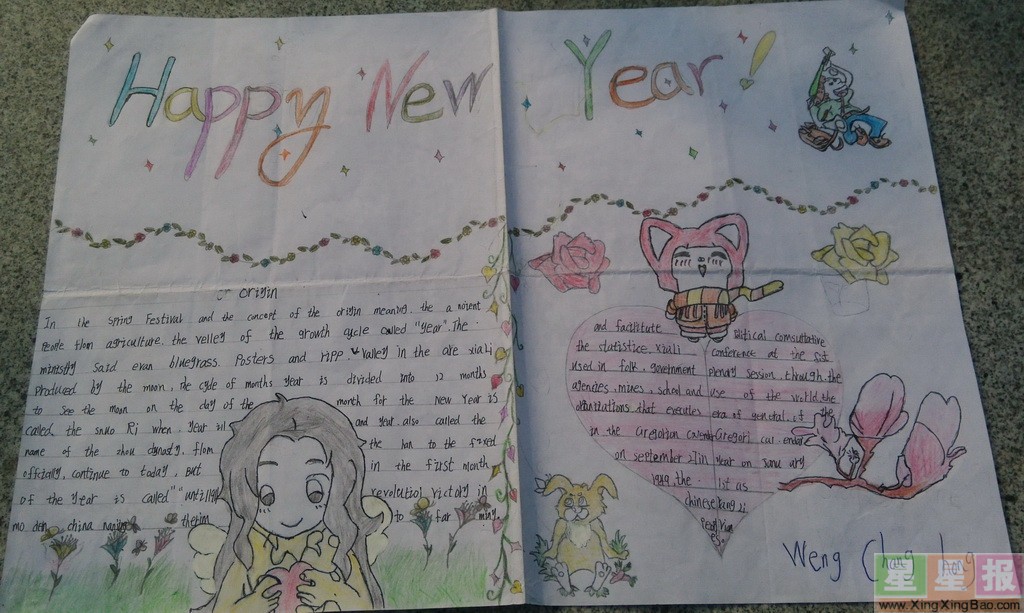 Happy New Year!
origin
In the Spring Festival and the concept of the origin meaning. the a ncient
People from agriculture. the velley of the growth cycle called "year". The
ministry said exun bluegrass. Posters and ripe valley in the are xia Li
Produced by the moon, he cycle of months year is divided into 12 months
to see the moon on the day of the month for the New Year is
called the shuo Ri when. year and year also called the
name of the zhou dynasty, from the han to the fixed
officially, continue to today, but in the first month
of the year is called "until 1911 revolution victory in
mo den china nanjing therim to far ming
and facilitate
the statistics. xia Li
used in folk, government
agencies, mines, school and
organizations that executes
in the Gregorian calendar
on september 27 in
1949 the
litical comsultative
conference at the fist
plenary session, through, the
use of the world, the
era of general, of the
Gregori car endar
year on sanu ary
1st as
chinese kang zi
Weng Chang hong
星星报
www.XingXingBao.com